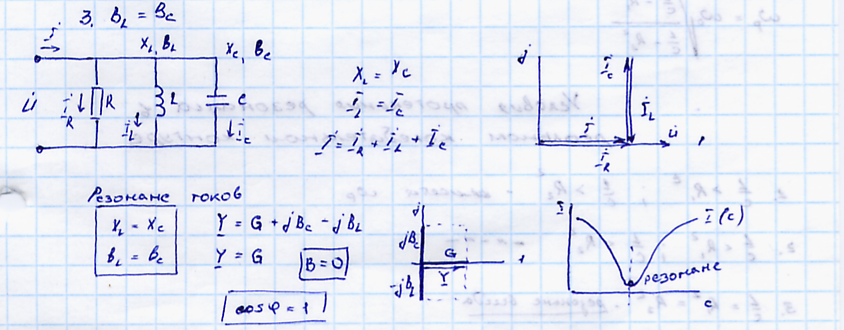 3. B_L = B_C
İ
X_L, B_L
X_C, B_C
U̇
İ_R
R
İ_L
L
C
İ_C
X_L = X_C
İ_L = İ_C
İ = İ_R + İ_L + İ_C
j
İ_C
İ_L
İ
U̇
İ_R
Резонанс токов
X_L = X_C
B_L = B_C
Y = G + jB_C - jB_L
Y = G
B=0
cos φ = 1
j
jB_C
G
Y
-jB_L
I
I(c)
резонанс
C